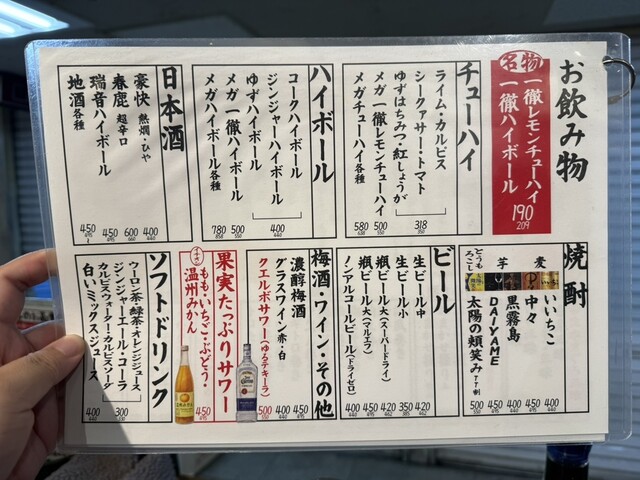 お飲み物
名物
一徹レモンチューハイ
一徹ハイボール
190
209
チューハイ
ライム・カルピス
シークァサー・トマト
ゆずはちみつ・紅しょうが
318
350
メガ一徹レモンチューハイ 500
550
メガチューハイ各種 580
638
ハイボール
コークハイボール
ジンジャーハイボール
ゆずハイボール
400
440
メガ一徹ハイボール 500
550
メガハイボール各種 780
858
日本酒
豪快 熱燗・ひや 400
440
春鹿 超辛口 600
660
瑞音ハイボール 450
495
地酒各種 450
495
~
焼酎
麦
いいちこ 400
440
中々 450
495
芋
黒霧島 400
440
DAIYAME 450
495
とうもろこし
太陽の頬笑み 500
550
ビール
生ビール中 420
462
生ビール小 350
瓶ビール大(スーパードライ) 420
462
瓶ビール大(マルエフ) 450
495
ノンアルコールビール(ドライゼロ) 400
440
梅酒・ワイン・その他
濃醇梅酒 450
495
グラスワイン赤・白 400
440
クエルボサワー(ゆるテキーラ) 500
550
果実たっぷりサワー
もも・いちご・ぶどう・
温州みかん
450
495
ソフトドリンク
ウーロン茶・緑茶・オレンジジュース
ジンジャーエール・コーラ
カルピスウォーター・カルピスソーダ
300
330
白いミックスジュース 400
440